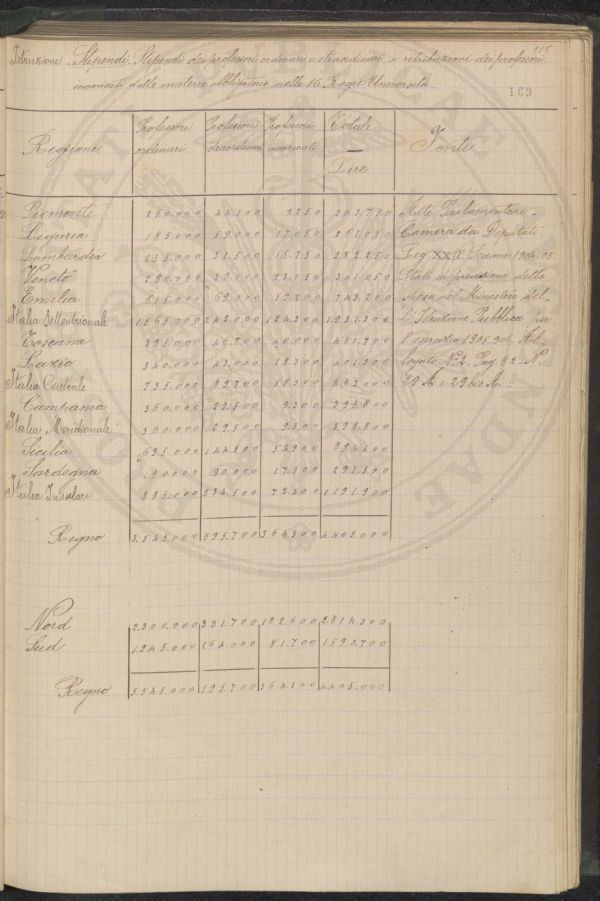 115
Istruzione - Stipendi. Stipendi dei professori ordinari e straordinari e retribuzione dei professori
incaricati delle materie obbligatorie nelle 16 Regie Università.
169
Regione Professori ordinari Professori straordinari Professori incaricati Totale — Lire Fonti
Piemonte 250.000 44.500 9250 303.750 Atti Parlamentari -
Liguria 185.000 59.000 17.050 261.050 Camera dei Deputati
Lombardia 235.000 31.500 15.750 282.250 Leg XXII. Sessione 1904-05
Veneto 250.000 38.000 Stato di previsione della
Emilia 615.000 69.000 59.200 743.200 spesa del Ministero del-
Italia Settentrionale 1.565.000 242.000 124.300 1.931.300 l'Istruzione Pubblica per
Toscana 395.000 46.700 40.000 481.700 l'esercizio 1905-906. Al-
Lazio 340.000 43.000 18.300 401.300 legato N.º 2. Pag. 82 - N.
Italia Centrale 735.000 89.700 58.300 883.000 29 A e 29 bis A. -
Campania 360.000 29.500 9.300 398.800
Italia Meridionale 360.000 29.500 9.300 398.800
Sicilia 695.000 144.500 54.900 894.400
Sardegna 190.000 90.000 17.500 297.500
Italia Insulare 885.000 234.500 72.400 1.191.900
Regno 3.545.000 595.700 364.300 4.405.000
Nord 2.300.000 331.700 182.600 2.814.300
Sud 1.245.000 264.000 81.700 1.590.700
Regno 3.545.000 595.700 364.300 4.405.000